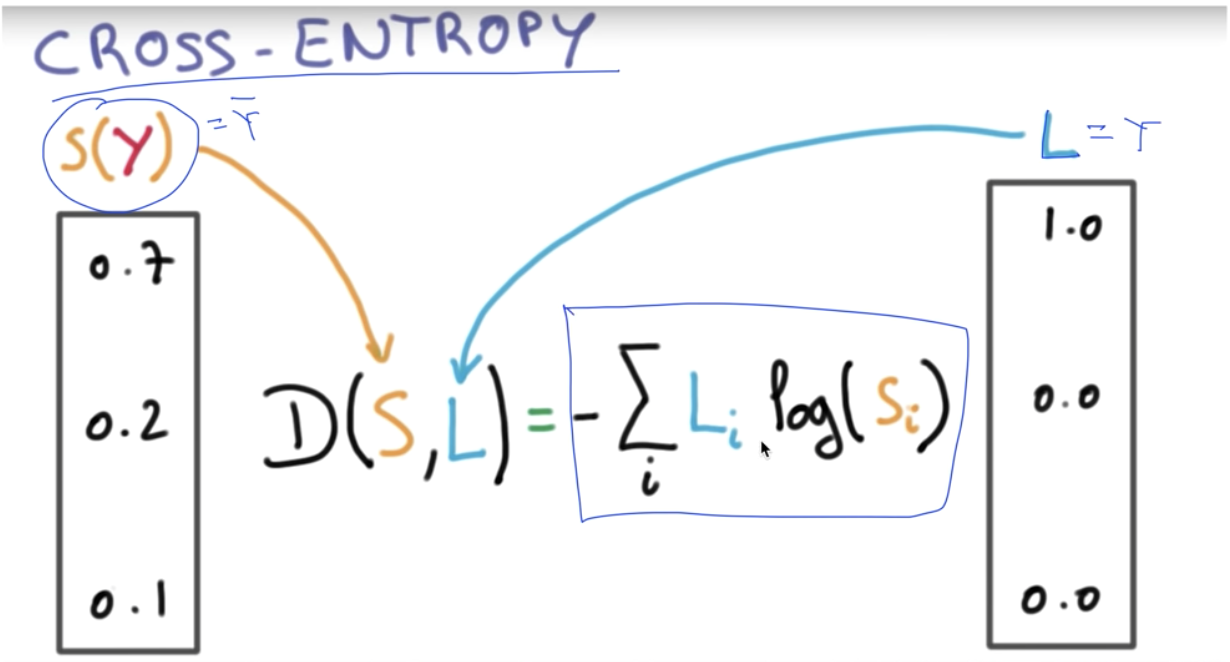 CROSS-ENTROPY
S(Y) = Ȳ
L = Y
0.7
0.2
0.1
D(S,L) = -∑i Li log(Si)
1.0
0.0
0.0